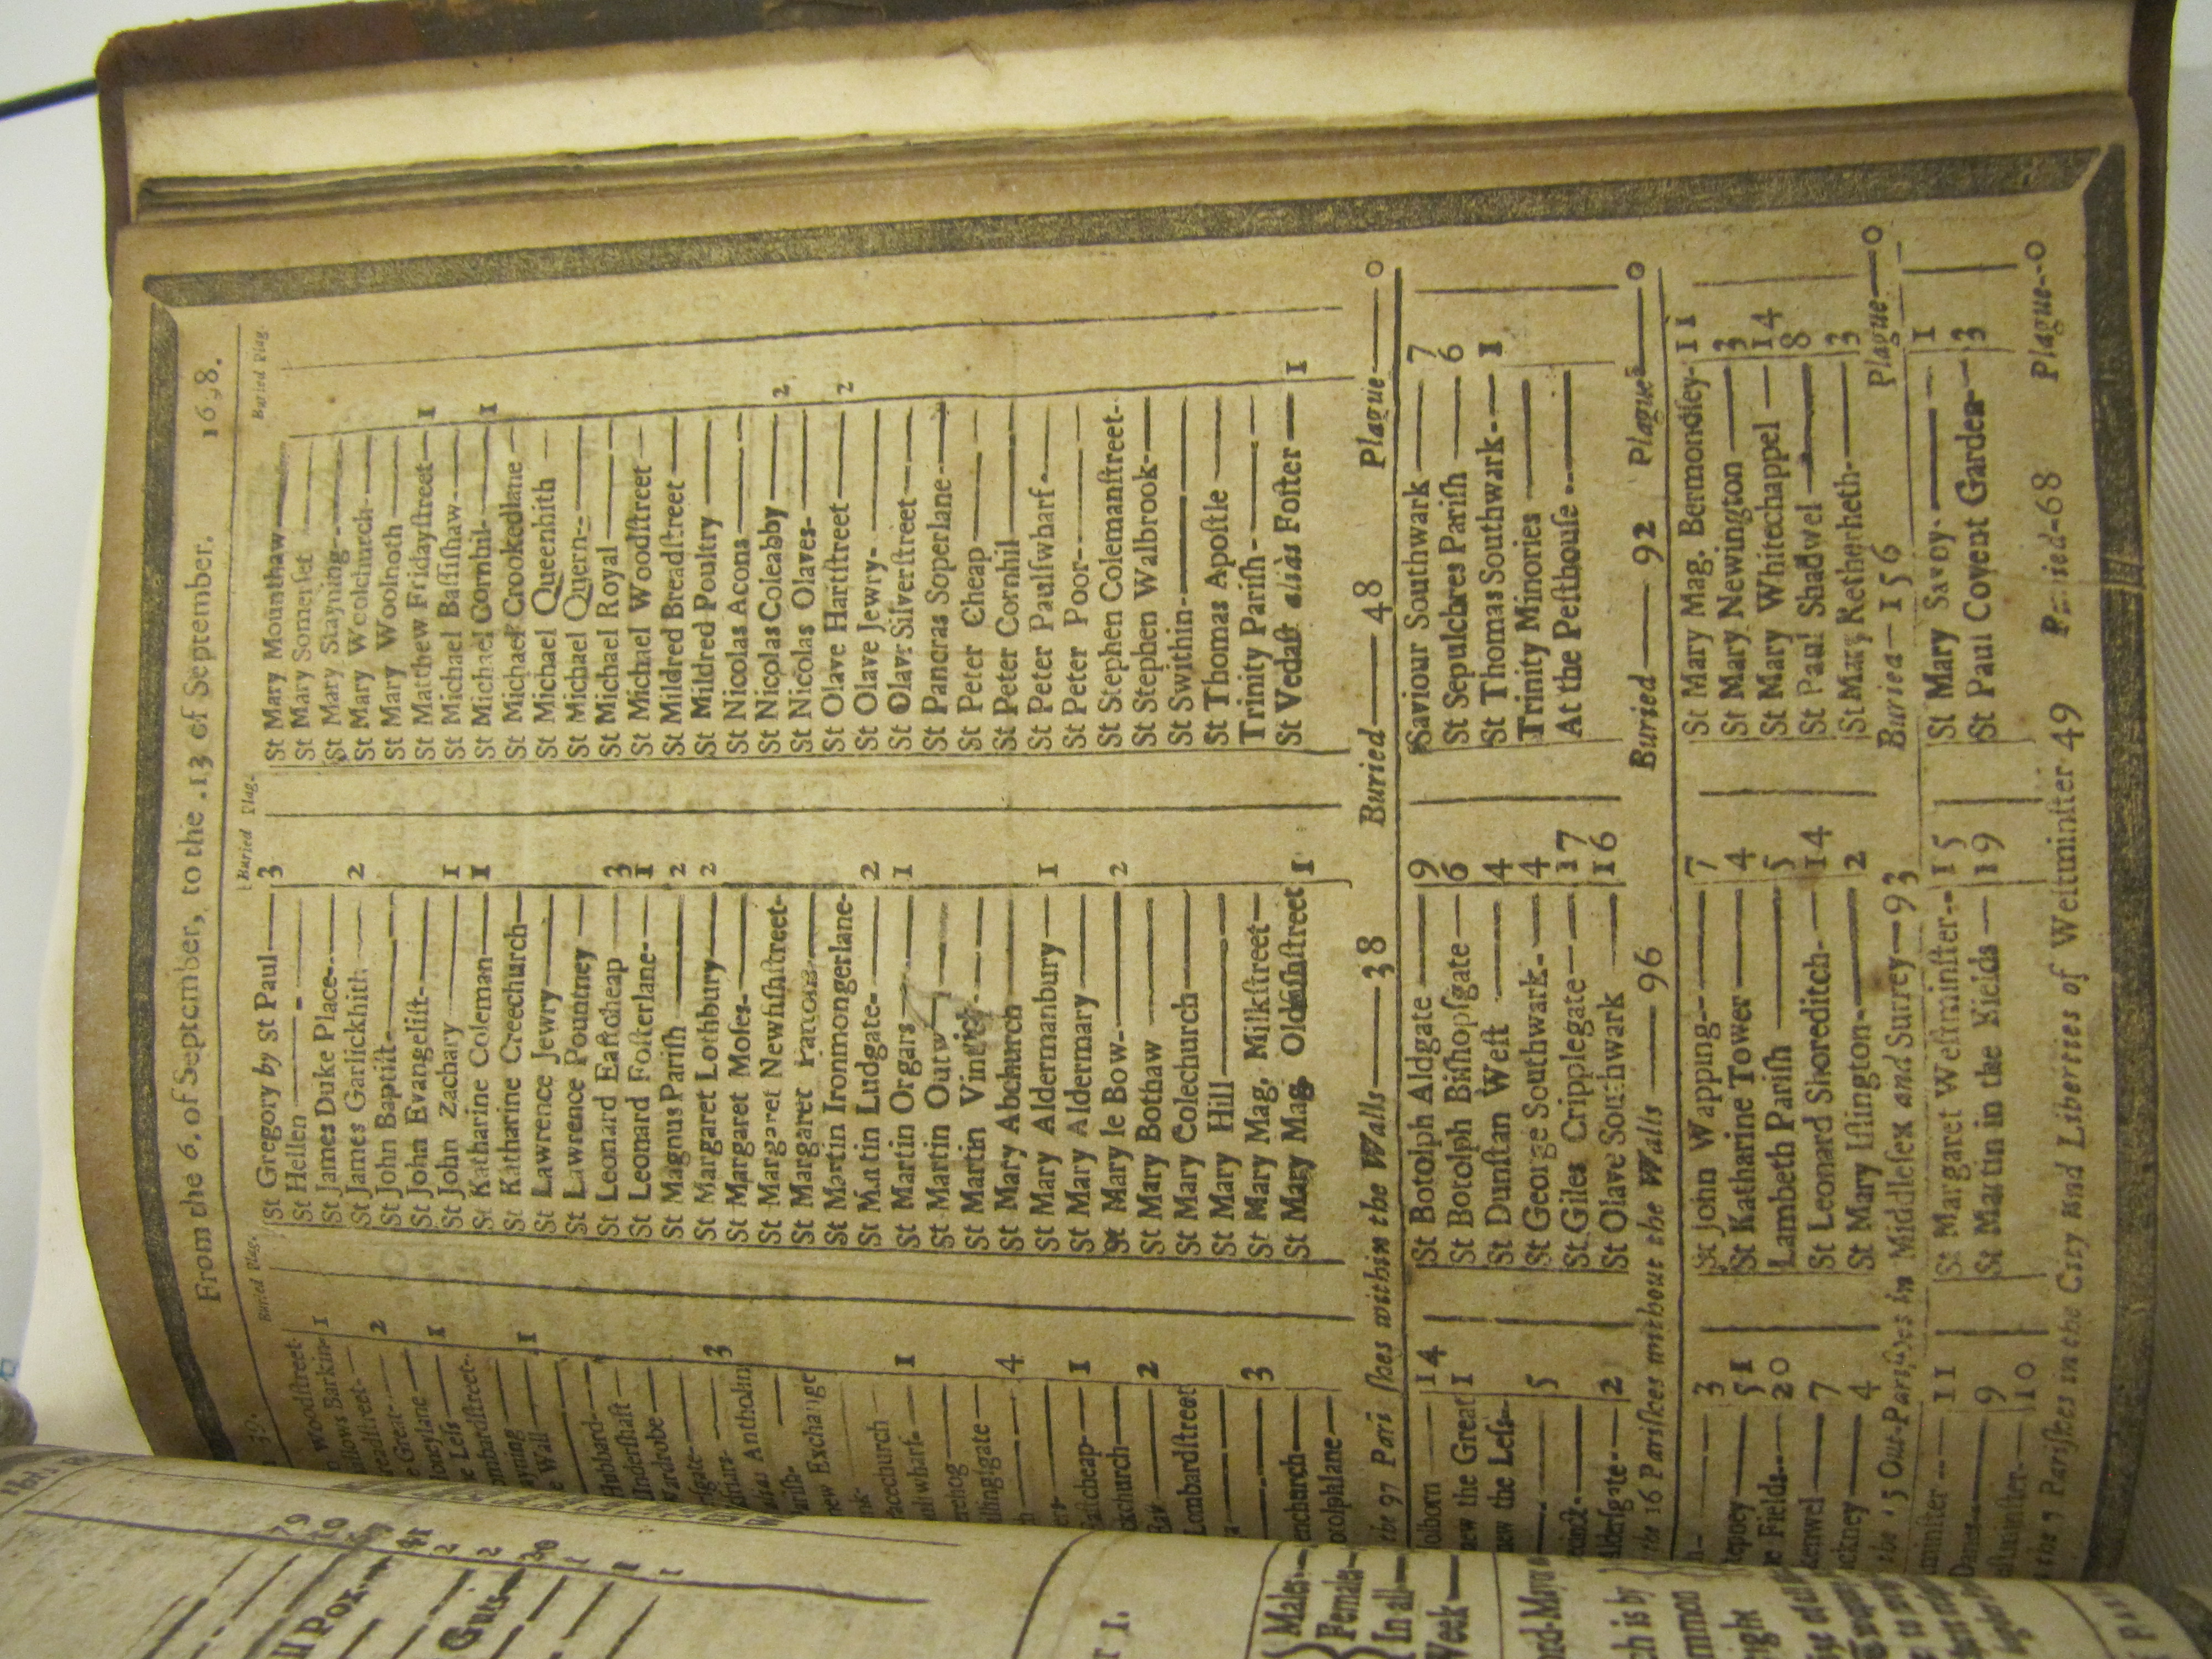 From the 6. of September, to the .13 of September. 16 8.
Buried Plag.
Buried Plag.
Buried Plag.
39.
Woodſtreet-
llows Barkin- 1
readſtreet-
e Great- 2
oneylane
e Leſs 1
ombardſtreet-
ayning
e Wall 1
Hubbard
Underſhaft
Wardrobe
Antholin 3
rew Exchange
racechurch
elwharf 1
erehog
illingſgate
4
aſtcheap 1
ckchurch
2
Lombardſtreet
3
enchurch
otolphlane
St Gregory by St Paul 3
St Hellen
St James Duke Place
St James Garlickhith 2
St John Baptiſt
St John Evangeliſt
St John Zachary 1
St Katharine Coleman 1
St Katharine Creechurch
St Lawrence Jewry
St Lawrence Pountney
St Leonard Eaſtcheap 3
St Leonard Foſterlane 1
St Magnus Pariſh 2
St Margaret Lothbury 2
St Margaret Moſes
St Margaret Newfiſhſtreet
St Margaret Pattons
St Martin Ironmongerlane
St Martin Ludgate 2
St Martin Orgars 1
St Martin Outw
St Martin Vin
St Mary Abchurch
St Mary Aldermanbury 1
St Mary Aldermary
St Mary le Bow 2
St Mary Bothaw
St Mary Colechurch
St Mary Hill
St Mary Mag. Milkſtreet
St Mary Mag. Oldfiſhſtreet 1
St Mary Mounthaw
St Mary Somerſet
St Mary Stayning
St Mary Woolchurch
St Mary Woolnoth
St Matthew Fridayſtreet 1
St Michael Baſſiſhaw
St Michael Cornhil 1
St Michael Crookedlane
St Michael Queenhith
St Michael Quern
St Michael Royal
St Michael Woodſtreet
St Mildred Breadſtreet
St Mildred Poultry
St Nicolas Acons
St Nicolas Coleabby 2
St Nicolas Olaves
St Olave Hartſtreet 2
St Olave Jewry
St Olave Silverſtreet
St Pancras Soperlane
St Peter Cheap
St Peter Cornhil
St Peter Paulſwharf
St Peter Poor
St Stephen Colemanſtreet
St Stephen Walbrook
St Swithin
St Thomas Apoſtle
Trinity Pariſh
St Vedaſt aliàs Foſter 1
the 97 Pariſhes within the Walls 38 Buried 48 Plague 0
olborn 14
ew the Great 1
ew the Leſs
5
Alderſgate 2
St Botolph Aldgate 9
St Botolph Biſhopſgate 6
St Dunſtan Weſt 4
St George Southwark 4
St Giles Cripplegate 17
St Olave Southwark 16
Saviour Southwark 7
St Sepulchres Pariſh 6
St Thomas Southwark 1
Trinity Minories
At the Peſthouſe
the 16 Pariſhes without the Walls 96 Buried 92 Plague 0
h- 3
epney 51
e Fields 20
kenwel 7
ckney 4
St John Wapping 7
St Katharine Tower 4
Lambeth Pariſh 5
St Leonard Shoreditch 14
St Mary Iſlington 2
St Mary Mag. Bermondſey 11
St Mary Newington 3
St Mary Whitechappel 14
St Paul Shadwel 8
St Mary Retherheth 3
the 15 Out-Pariſhes in Middleſex and Surrey 93 Buried 156 Plague 0
minſter 11
Danes 9
eſtminſter 10
St Margaret Weſtminſter 15
St Martin in the Fields 19
St Mary Savoy 1
St Paul Covent Garden 3
the 7 Pariſhes in the City and Liberties of Weſtminſter 49 Buried 68 Plague 0
ll Pox
Guts
Males
Females
In all
Week
ord Mayor
ch is by
mmon
right